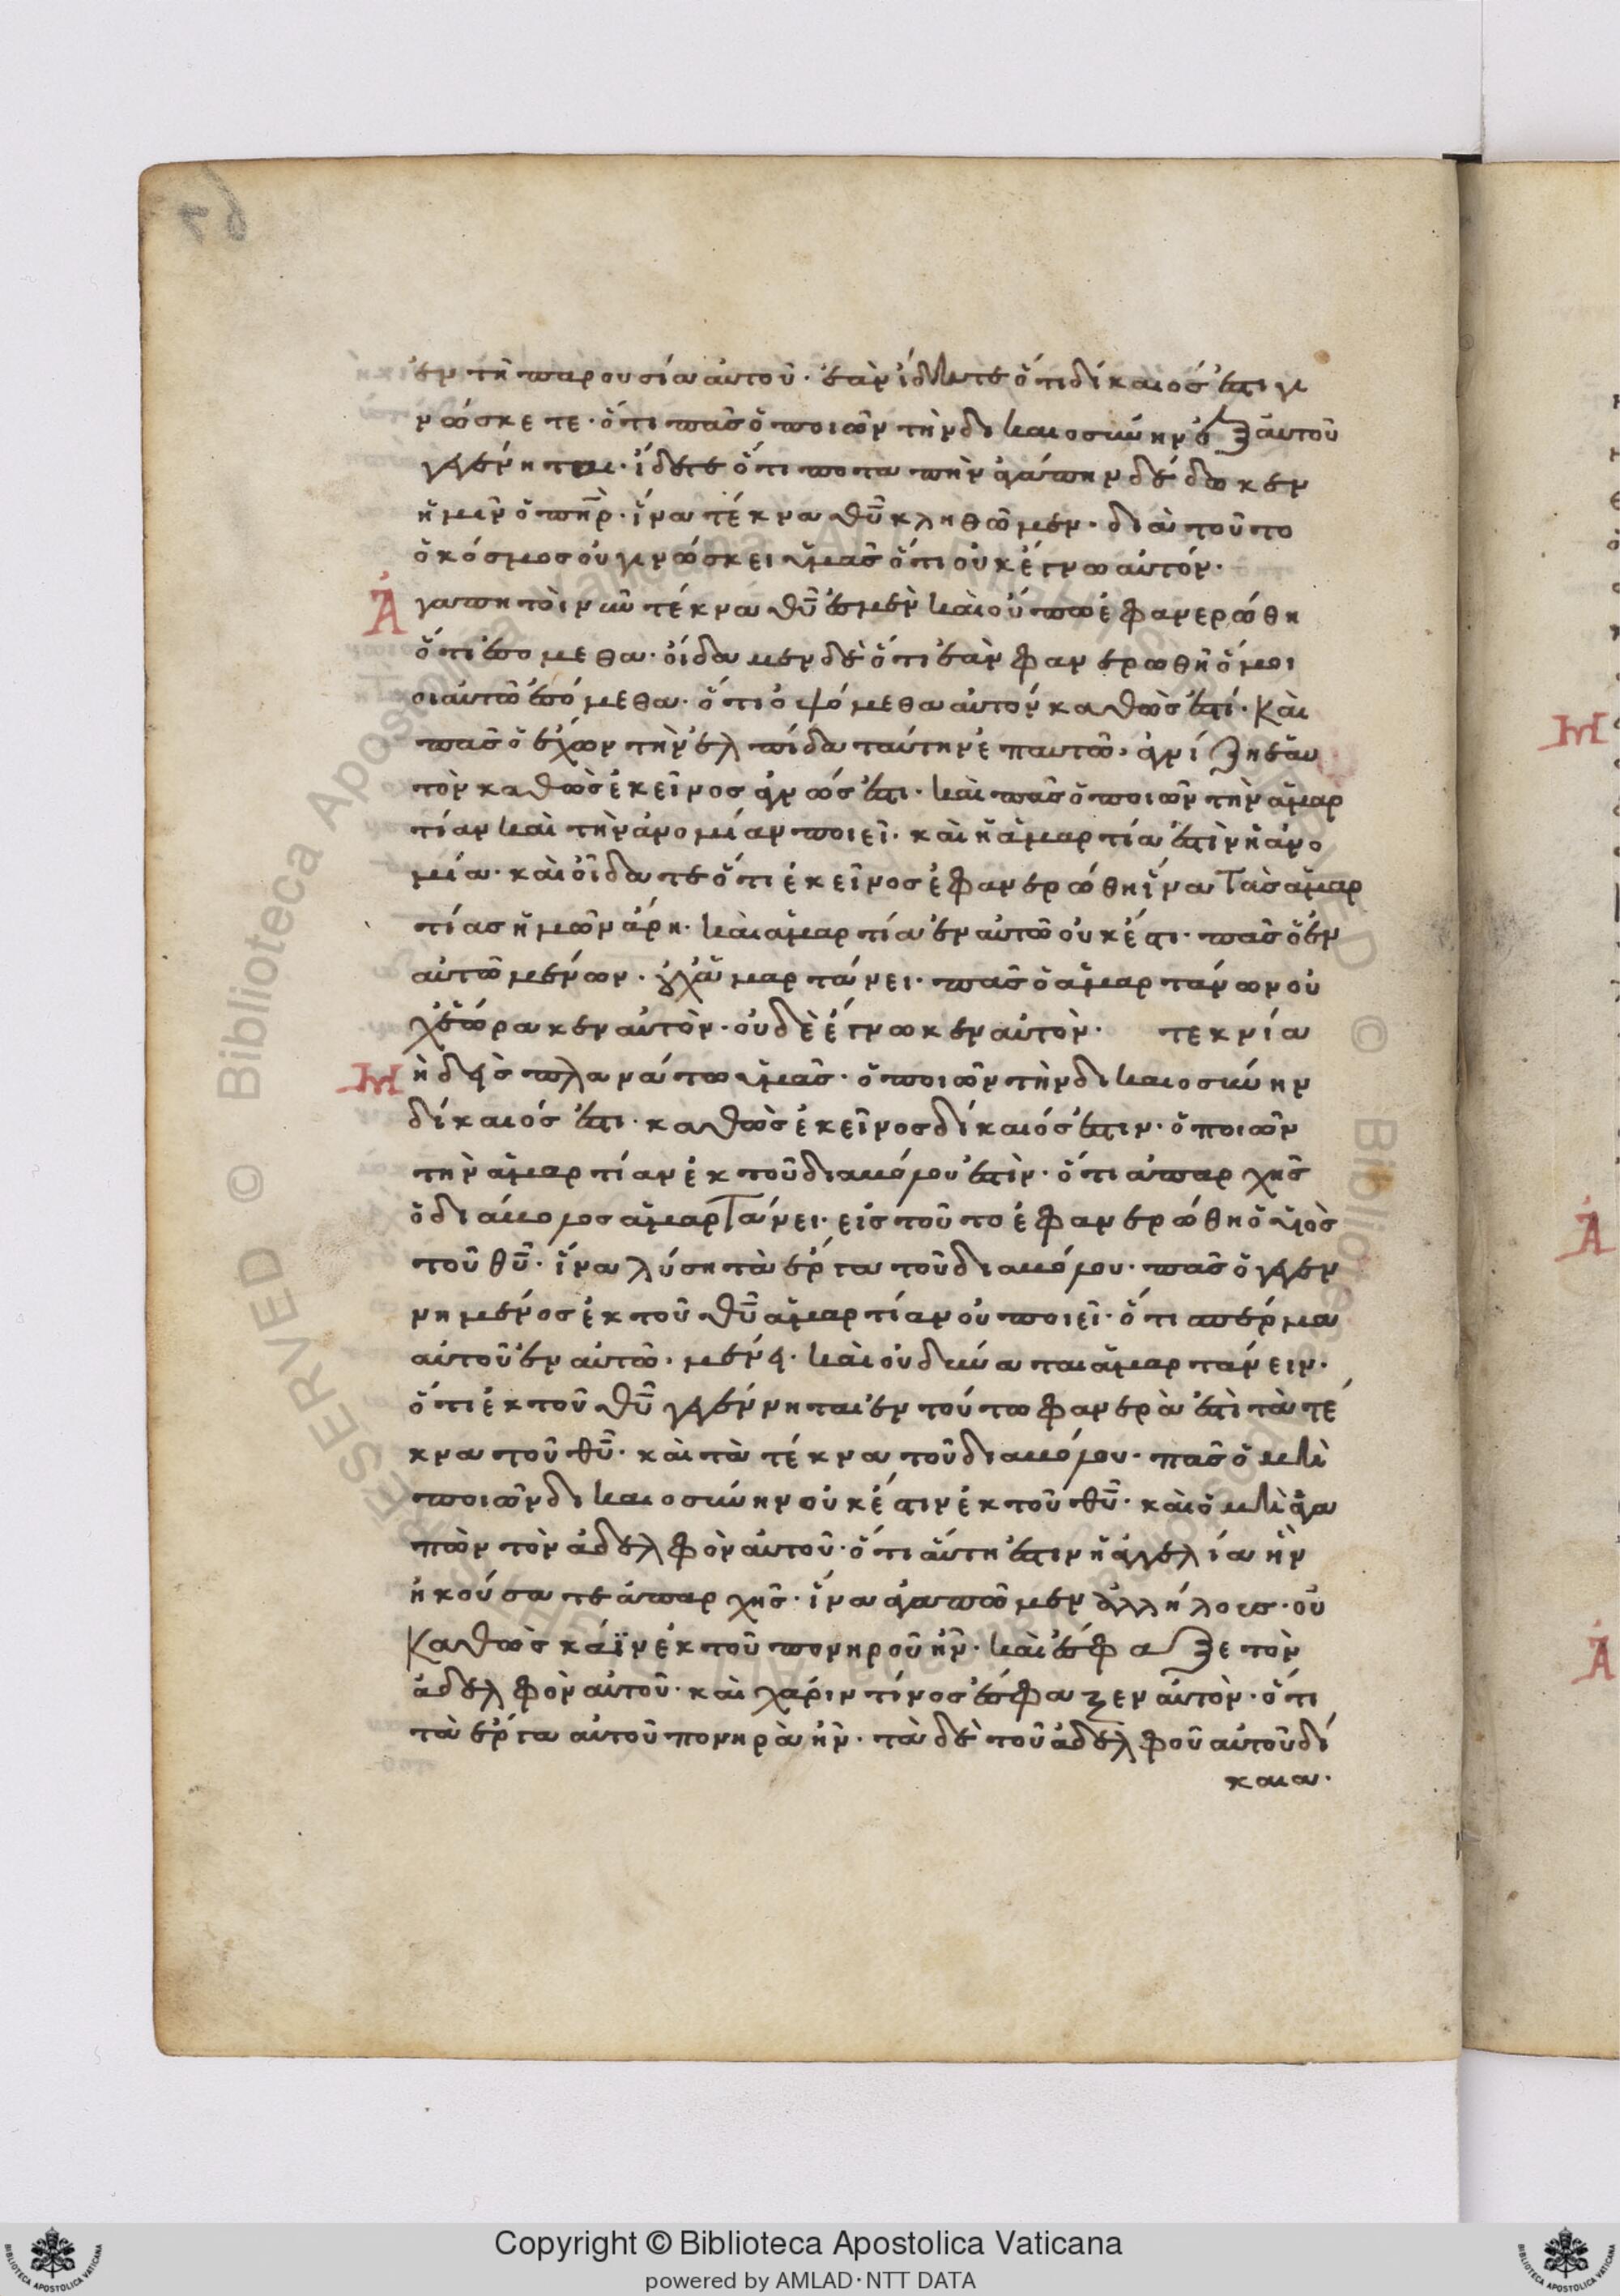 ἐν τῆ παρουσία αὐτοῦ· ἐὰν ἴδητε ὅτι δίκαιός ἐστι γι
νώσκετε· ὅτι πᾶς ὁ ποιῶν τὴν δικαιοσύνην ἐξ αὐτοῦ
γεγέννηται· ἴδετε ὅτι ποταπὴν ἀγάπην δέδωκεν
ἡμῖν ὁ πηρ· ἵνα τέκνα θυ κληθῶμεν· διὰ τοῦτο
ὁ κόσμος οὐ γινώσκει ὑμᾶς ὅτι οὐκ ἔγνω αὐτόν·
Ἀγαπητοὶ νῦν τέκνα θυ ἐσμὲν καὶ οὔπω ἐφανερώθη
ὅτι ἐσόμεθα· οἴδαμεν δὲ ὅτι ἐὰν φανερωθῆ ὅμοι
οι αὐτῶ ἐσόμεθα· ὅτι ὀψόμεθα αὐτὸν καθώς ἐστί· Καὶ
πᾶς ὁ ἔχων τὴν ἐλπίδα ταύτην ἐπ αυτῶ· ἁγνίζη ἑαυ
τὸν καθὼς ἐκεῖνος ἁγνώς ἐστι· καὶ πᾶς ὁ ποιῶν τὴν ἁμαρ
τίαν καὶ τὴν ἀνομίαν ποιεῖ· καὶ ἡ ἁμαρτία ἐστὶν ἡ ἀνο
μία· καὶ οἴδατε ὅτι ἐκεῖνος ἐφανερώθη ἵνα Τὰς ἁμαρ
τίας ἡμῶν ἄρη· καὶ ἁμαρτία ἐν αὐτῶ οὐκ ἔστι· πᾶς ὁ ἐν
αὐτῶ μένων· οὐχ ἁμαρτάνει· πᾶς ὁ ἁμαρτάνων οὐ
χ ἑώρακεν αὐτὸν· οὐδὲ ἔγνωκεν αὐτὸν· τεκνία
Μηδεὶς πλανάτω ὑμᾶς· ὁ ποιῶν τὴν δικαιοσύνην
δίκαιός ἐστι· καθὼς ἐκεῖνος δίκαιός ἐστιν· ὁ ποιῶν
τὴν ἁμαρτίαν ἐκ τοῦ διαβόλου ἐστὶν· ὅτι ἀπαρχῆς
ὁ διάβολος ἁμαρΤάνει· εἰς τοῦτο ἐφανερώθη ὁ υἱὸς
τοῦ θυ· ἵνα λύση τὰ ἔργα τοῦ διαβόλου· πᾶς ὁ γεγεν
νημένος ἐκ τοῦ θυ ἁμαρτίαν οὐ ποιεῖ· ὅτι σπέρμα
αὐτοῦ ἐν αὐτῶ· μένει· καὶ οὐ δύναται ἁμαρτάνειν·
ὅτι ἐκ τοῦ θυ γεγέννηται ἐν τούτω φανερὰ ἐστὶ τὰ τέ
κνα τοῦ θυ· καὶ τὰ τέκνα τοῦ διαβόλου· πᾶς ὁ μὴ
ποιῶν δικαιοσύνην οὐκ ἔστιν ἐκ τοῦ θυ· καὶ ὁ μὴ ἀγα
πῶν τὸν ἀδελφὸν αὐτοῦ· ὅτι αὕτη ἐστιν ἡ ἀγγελία ἣν
ἠκούσατε ἀπαρχῆς· ἵνα ἀγαπῶμεν ἀλλήλους· οὐ
Καθὼς κάϊν ἐκ τοῦ πονηροῦ ἦν· καὶ ἔσφαξε τὸν
ἀδελφὸν αὐτοῦ· καὶ χάριν τίνος ἔσφαξεν αὐτὸν· ὅτι
τὰ ἔργα αὐτοῦ πονηρὰ ἦν· τὰ δὲ τοῦ ἀδελφοῦ αὐτοῦ δί
καια·
Copyright © Biblioteca Apostolica Vaticana
powered by AMLAD·NTT DATA